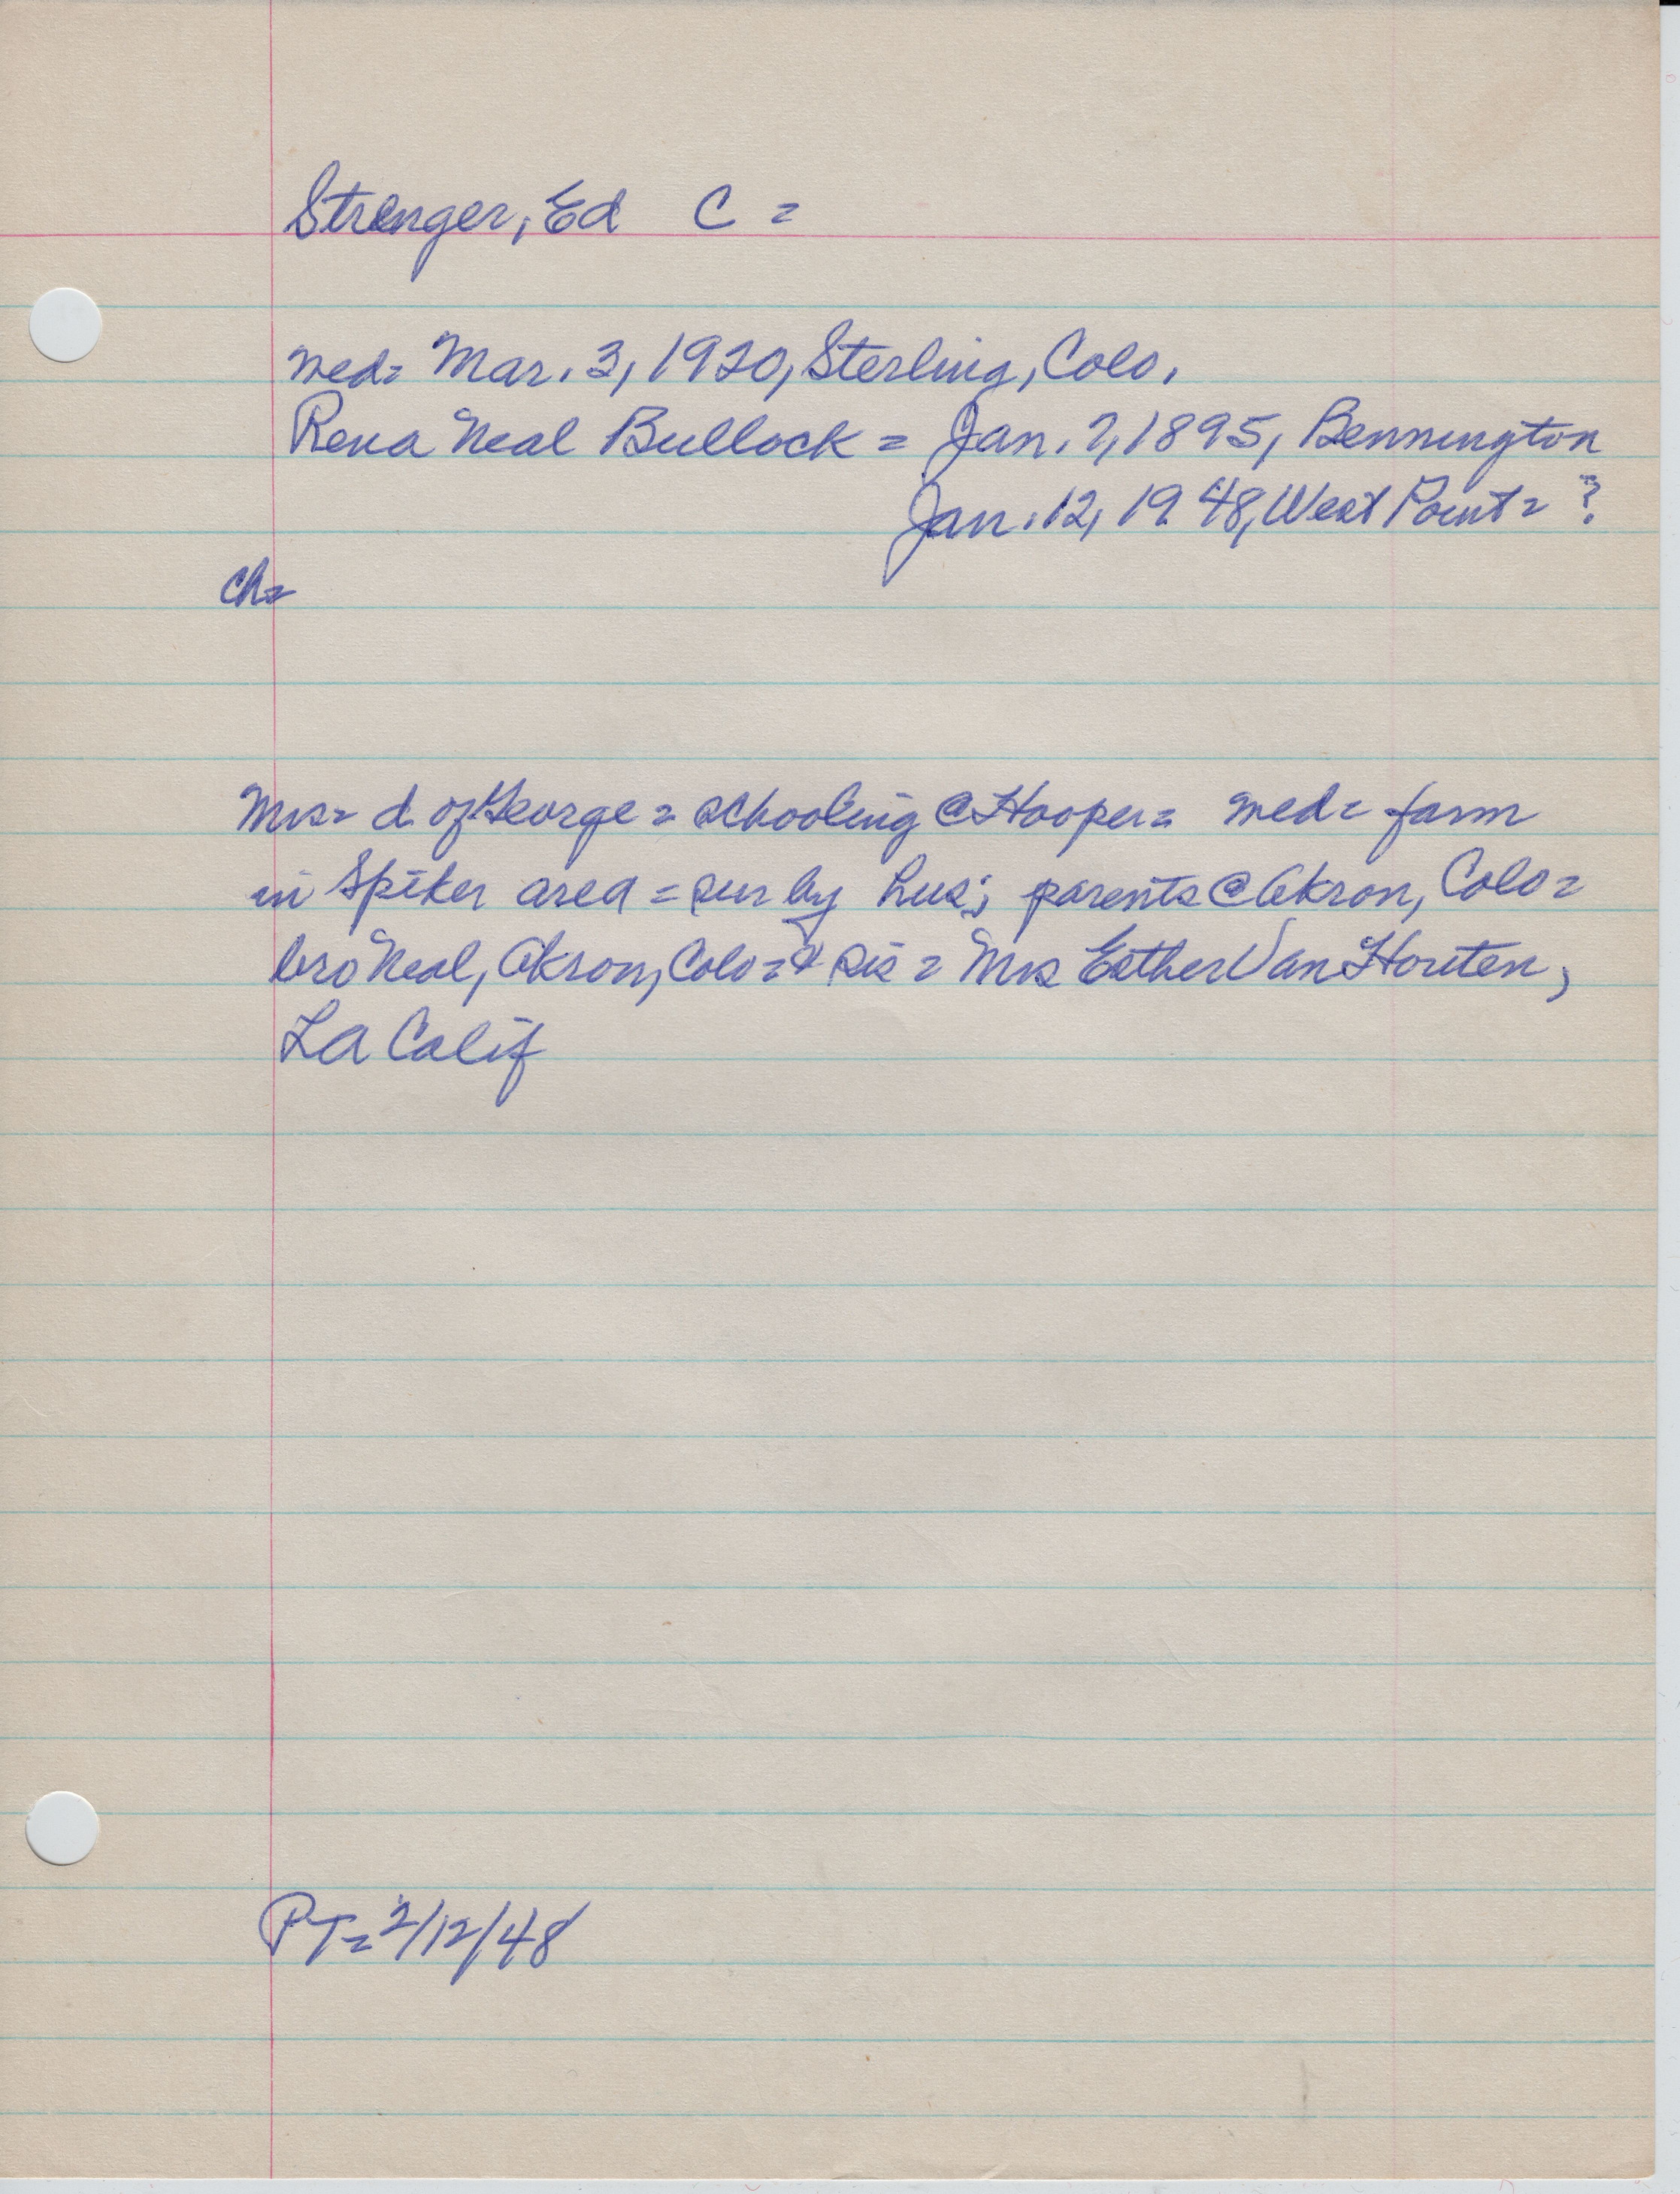 Strenger, Ed C =
wed= Mar. 3, 1920, Sterling, Colo.
Rena Neal Bullock = Jan. 7, 1895, Bennington
Jan. 12, 1948, West Point = ?
ch=
Mrs= d of George = schooling @ Hooper = wed = farm
in Spiker area = sur by hus; parents @ Akron, Colo =
bro Neal, Akron, Colo = & sis = Mrs Esther Van Houten,
LA Calif
PT= 2/12/48